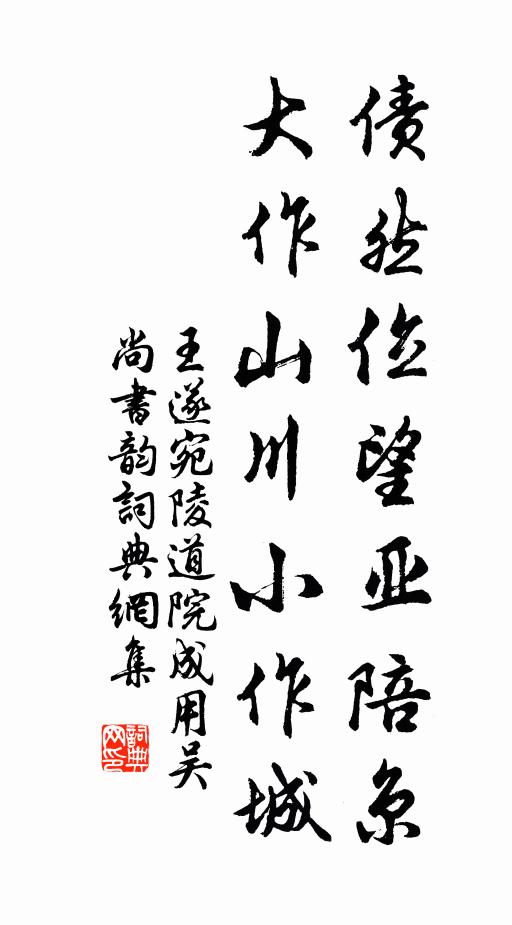 债然位望亚陪京
大作山川小作城
王遂宛陵道院成用吴
尚書韵詞典網集
詞典网印